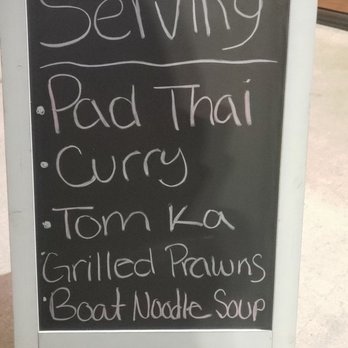 Serving
• Pad Thai
• Curry
• Tom Ka
• Grilled Prawns
• Boat Noodle Soup